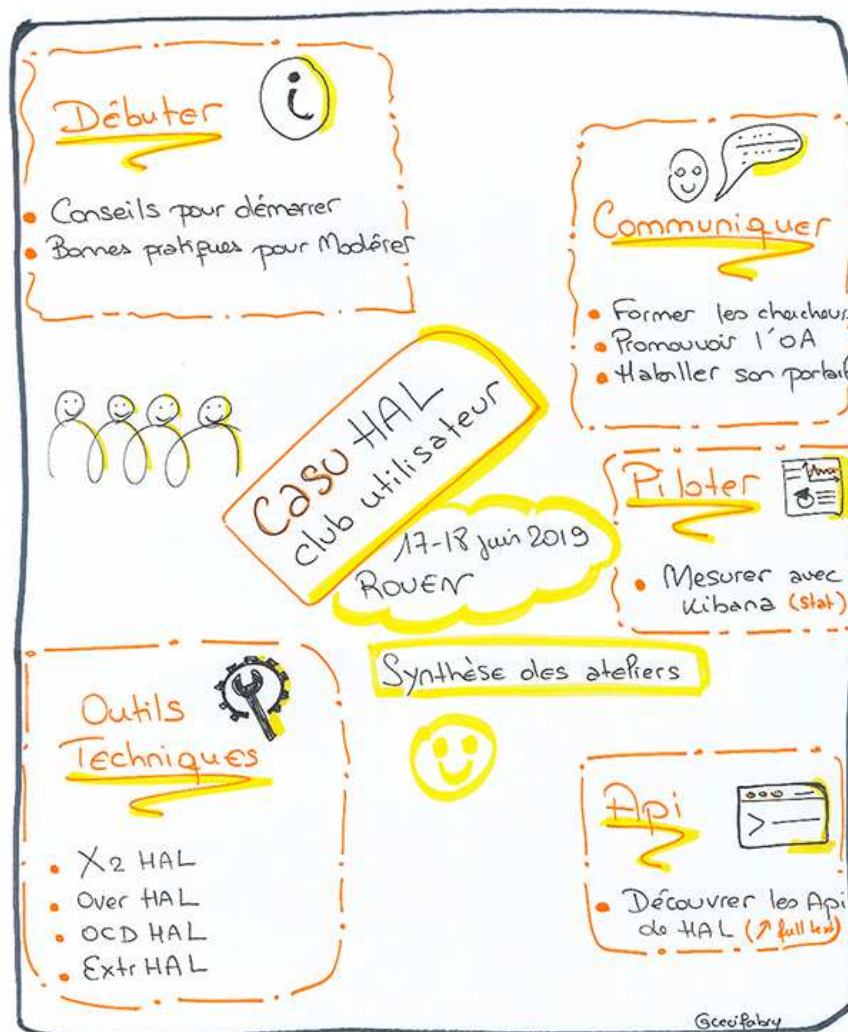 Débuter
• Conseils pour démarrer
• Bonnes pratiques pour Modérer
Communiquer
• Former les chercheurs
• Promouvoir l'OA
• Habiller son portail
Casu HAL
club utilisateur
17-18 juin 2019
ROUEN
Synthèse des ateliers
Piloter
• Mesurer avec
Kibana (stat)
Outils
Techniques
• X2 HAL
• Over HAL
• OCD HAL
• Extr HAL
Api
>
• Découvrer les Api
de HAL (↗ full text)
@cecifabry